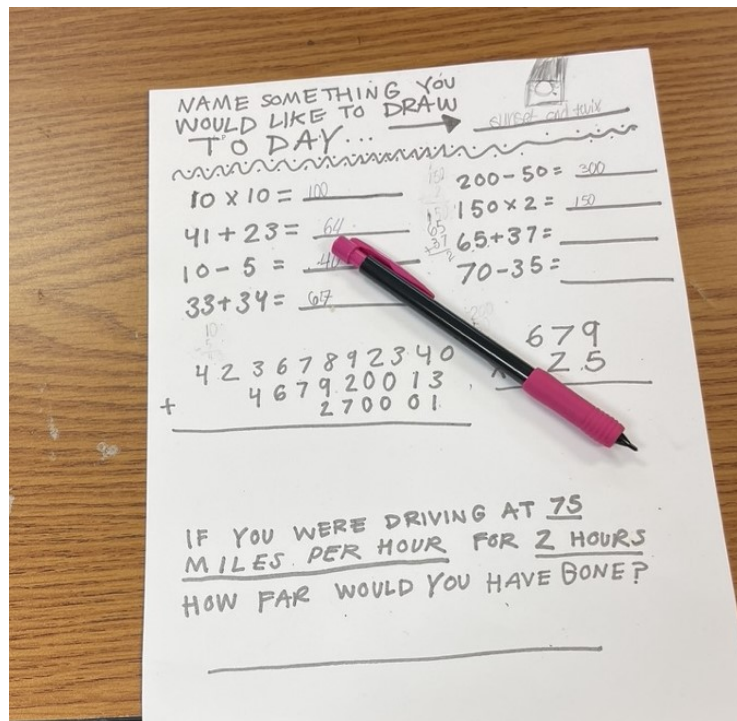 NAME SOMETHING YOU
WOULD LIKE TO DRAW
TODAY...
sunset and twix
10 x 10 = 100
41 + 23 = 64
10 - 5 =
33 + 34 = 67
200 - 50 = 300
150 x 2 = 150
65 + 37 =
70 - 35 =
65
+37
2
42367892340
4679.20013
+ 270001
679
25
IF YOU WERE DRIVING AT 75
MILES PER HOUR FOR 2 HOURS
HOW FAR WOULD YOU HAVE GONE?